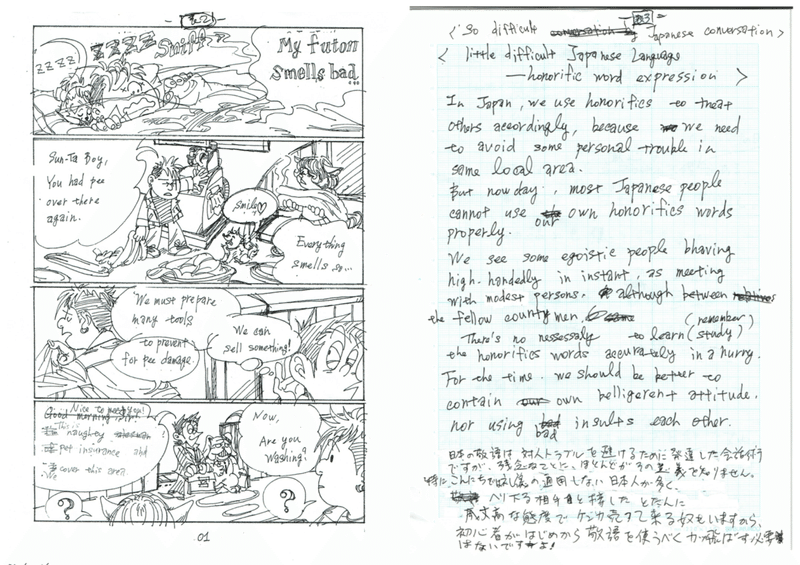 zzzz
ZZZZ
Sniff
My futon
Smells bad...
Sun-Ta Boy,
You had pee
over there
again.
Smile♡
Everything
smells so...
We must prepare
many tools
to prevent
for pee damage.
We can
sell something!
Nice to meet you!
Good morning
This is
naughty
pet insurance and
We cover this area
Now,
Are you
washing?
?
?
01
<So difficult conversation Japanese conversation>
< little difficult Japanese Language
— honorific word expression >
In Japan, we use honorifics to treat
others accordingly, because we need
to avoid some personal trouble in
same local area.
But nowday, most Japanese people
cannot use our own honorifics words
properly.
We see some egoistic people bhaving
high-handedly in instant, as meeting
with modest persons. although between
the fellow countymen.
There's no nessesaly to learn (remember) (study)
the honorifics words accurately in a hurry.
For the time. we should be better to
contain our own belligerent attitude.
nor using bad insults each other.
日本の敬語は対人トラブルを避けるために発達した会話作法
ですが、残念なことに、ほとんどがその意義を知りません。
特に、こんにちでは礼儀の通用しない日本人が多く、
ヘり下る相手と接したとたんに
威丈高な態度でケンカ売って来る奴もいますから、
初心者がはじめから敬語を使うべくカッ飛ばす必要
はないですよ!